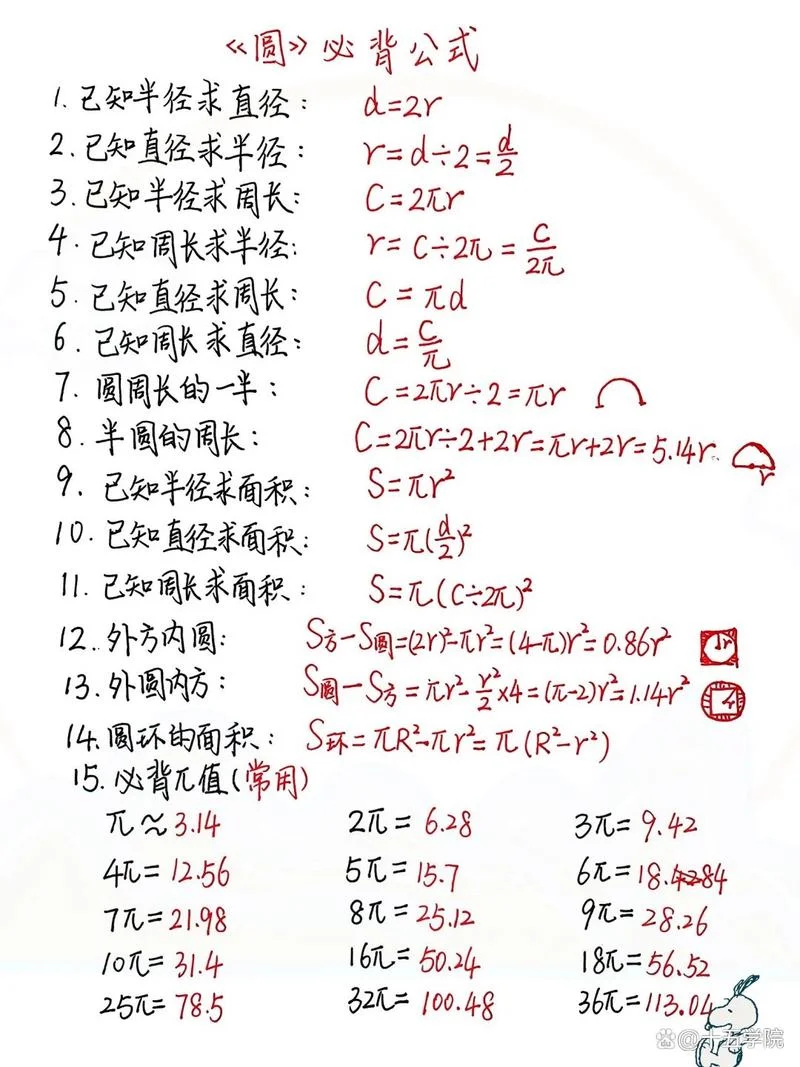 《圆》必背公式
1.已知半径求直径: d=2r
2.已知直径求半径: r=d÷2=d/2
3.已知半径求周长: C=2πr
4.已知周长求半径: r=C÷2π=C/2π
5.已知直径求周长: C=πd
6.已知周长求直径: d=C/π
7.圆周长的一半: C=2πr÷2=πr
8.半圆的周长: C=2πr÷2+2r=πr+2r=5.14r r
9.已知半径求面积: S=πr²
10.已知直径求面积: S=π(d/2)²
11.已知周长求面积: S=π(C÷2π)²
12.外方内圆: S方-S圆=(2r)²-πr²=(4-π)r²=0.86r² r
13.外圆内方: S圆-S方=πr²-r²/2×4=(π-2)r²=1.14r² r
14.圆环的面积: S环=πR²-πr²=π(R²-r²)
15.必背π值(常用)
π≈3.14 2π=6.28 3π=9.42
4π=12.56 5π=15.7 6π=18.84
7π=21.98 8π=25.12 9π=28.26
10π=31.4 16π=50.24 18π=56.52
25π=78.5 32π=100.48 36π=113.04
十五学院